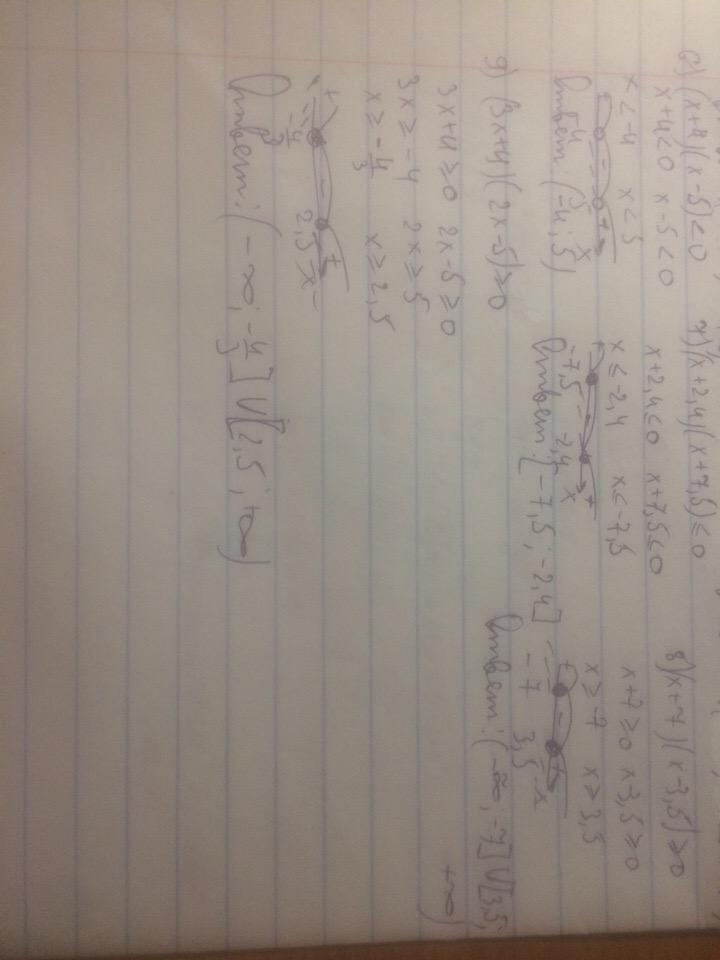 6) (x+4)(x-5)<0
x+4<0 x-5<0
x<-4 x<5
+ - +
-4 5 x
Ответ: (-4; 5)
7) (x+2,4)(x+7,5)≤0
x+2,4≤0 x+7,5≤0
x≤-2,4 x≤-7,5
+ - +
-7,5 -2,4 x
Ответ: [-7,5; -2,4]
8) (x+7)(x-3,5)≥0
x+7≥0 x-3,5≥0
x≥-7 x≥3,5
+ - +
-7 3,5 x
Ответ: (-∞; -7] U [3,5;
+∞)
9) (3x+4)(2x-5)≥0
3x+4≥0 2x-5≥0
3x≥-4 2x≥5
x≥-4/3 x≥2,5
+ - +
-4/3 2,5 x
Ответ: (-∞; -4/3] U [2,5; +∞)